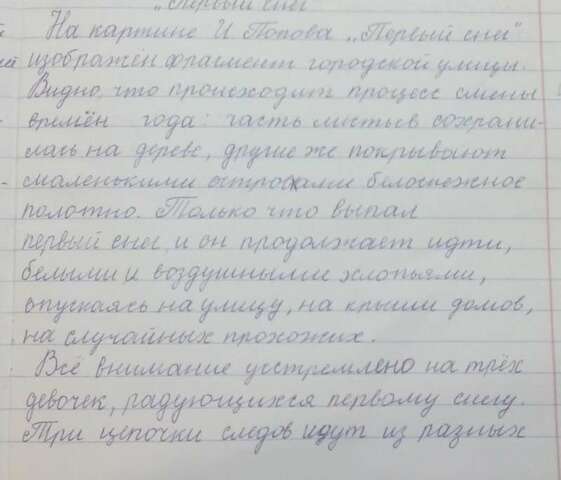 „Первый снег"
На картине И. Попова „Первый снег"
изображён фрагмент городской улицы.
Видно, что происходит процесс смены
времён года: часть листьев сохрани-
лась на дереве, другие же покрывают
маленькими островками белоснежное
полотно. Только что выпал
первый снег, и он продолжает идти,
белыми и воздушными хлопьями,
опускаясь на улицу, на крыши домов,
на случайных прохожих.
Всё внимание устремлено на трёх
девочек, радующихся первому снегу.
Три цепочки следов идут из разных